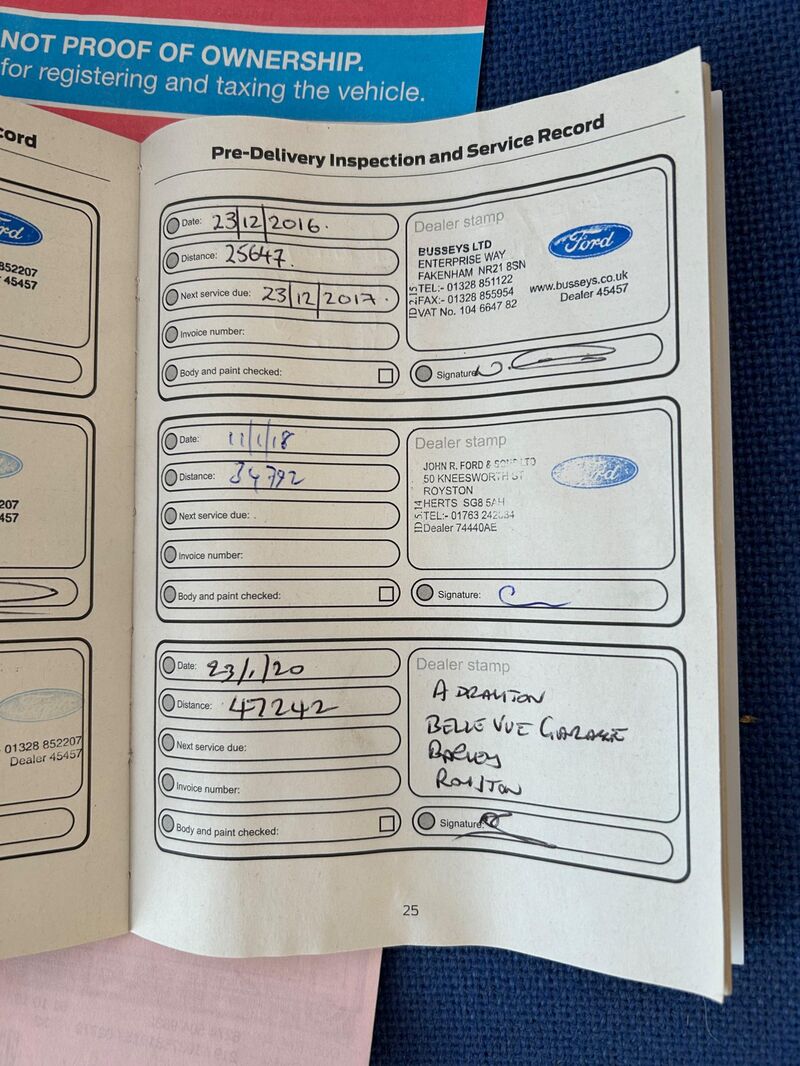 NOT PROOF OF OWNERSHIP.
for registering and taxing the vehicle.
cord
rd
852207
45457
207
457
01328 852207
Dealer 45457
Pre-Delivery Inspection and Service Record
Date: 23/12/2016.
Distance: 25647.
Next service due: 23/12/2017.
Invoice number:
Body and paint checked:
Dealer stamp
Ford
BUSSEYS LTD
ENTERPRISE WAY
FAKENHAM NR21 8SN
TEL:- 01328 851122
FAX:- 01328 855954
VAT No. 104 6647 82
www.busseys.co.uk
Dealer 45457
Signature
Date: 11/1/18
Distance: 34792
Next service due:
Invoice number:
Body and paint checked:
Dealer stamp
Ford
JOHN R. FORD & SONS LTD
50 KNEESWORTH ST
ROYSTON
HERTS SG8 5AH
TEL:- 01763
Dealer 74440AE
Signature:
Date: 23/1/20
Distance: 47242
Next service due:
Invoice number:
Body and paint checked:
Dealer stamp
A DRAYTON
BELLE VUE GARAGE
BARLEY
ROYSTON
Signature:
25